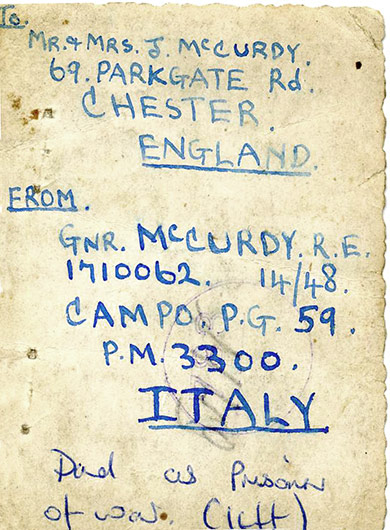 To
MR. & MRS. J. McCURDY.
69. PARKGATE Rd.
CHESTER.
ENGLAND.
FROM.
GNR. McCURDY. R.E.
1710062. 14/48.
CAMPO. P.G. 59.
P.M. 3300.
ITALY
Died as Prisoner
of war. (